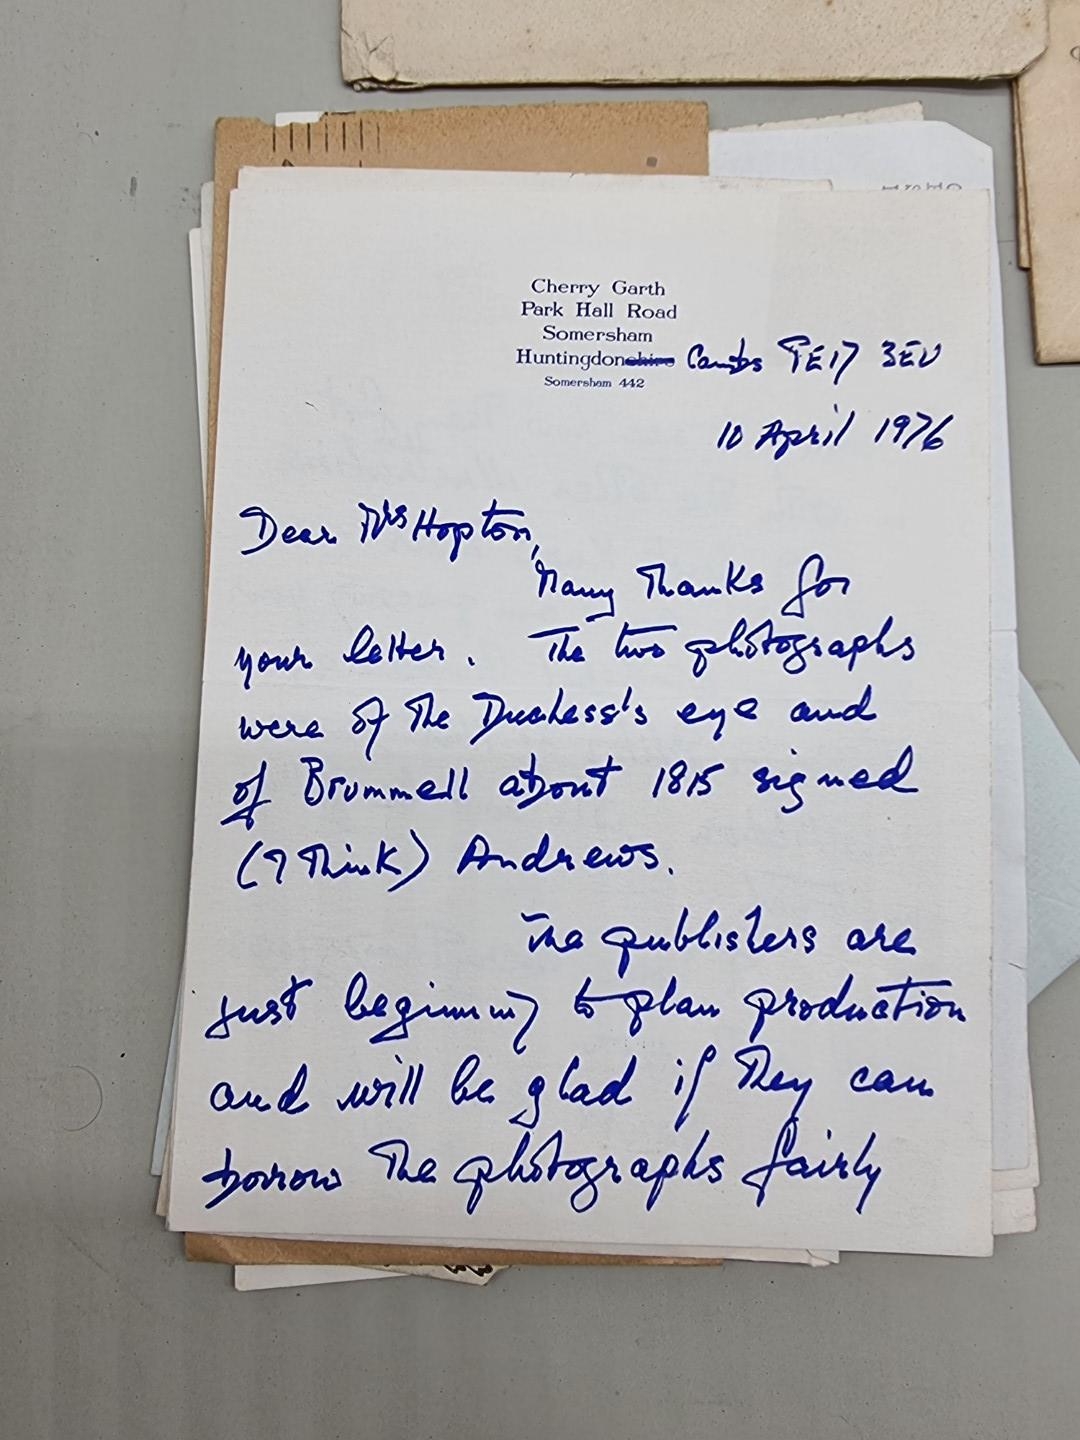 Cherry Garth
Park Hall Road
Somersham
Huntingdonshire Cambs PE17 3EU
Somersham 442
10 April 1976
Dear Mrs Hopton,
Many thanks for
your letter. The two photographs
were of the Duchess's eye and
of Brummell about 1815 signed
(I think) Andrews.
The publishers are
just beginning to plan production
and will be glad if they can
borrow the photographs fairly